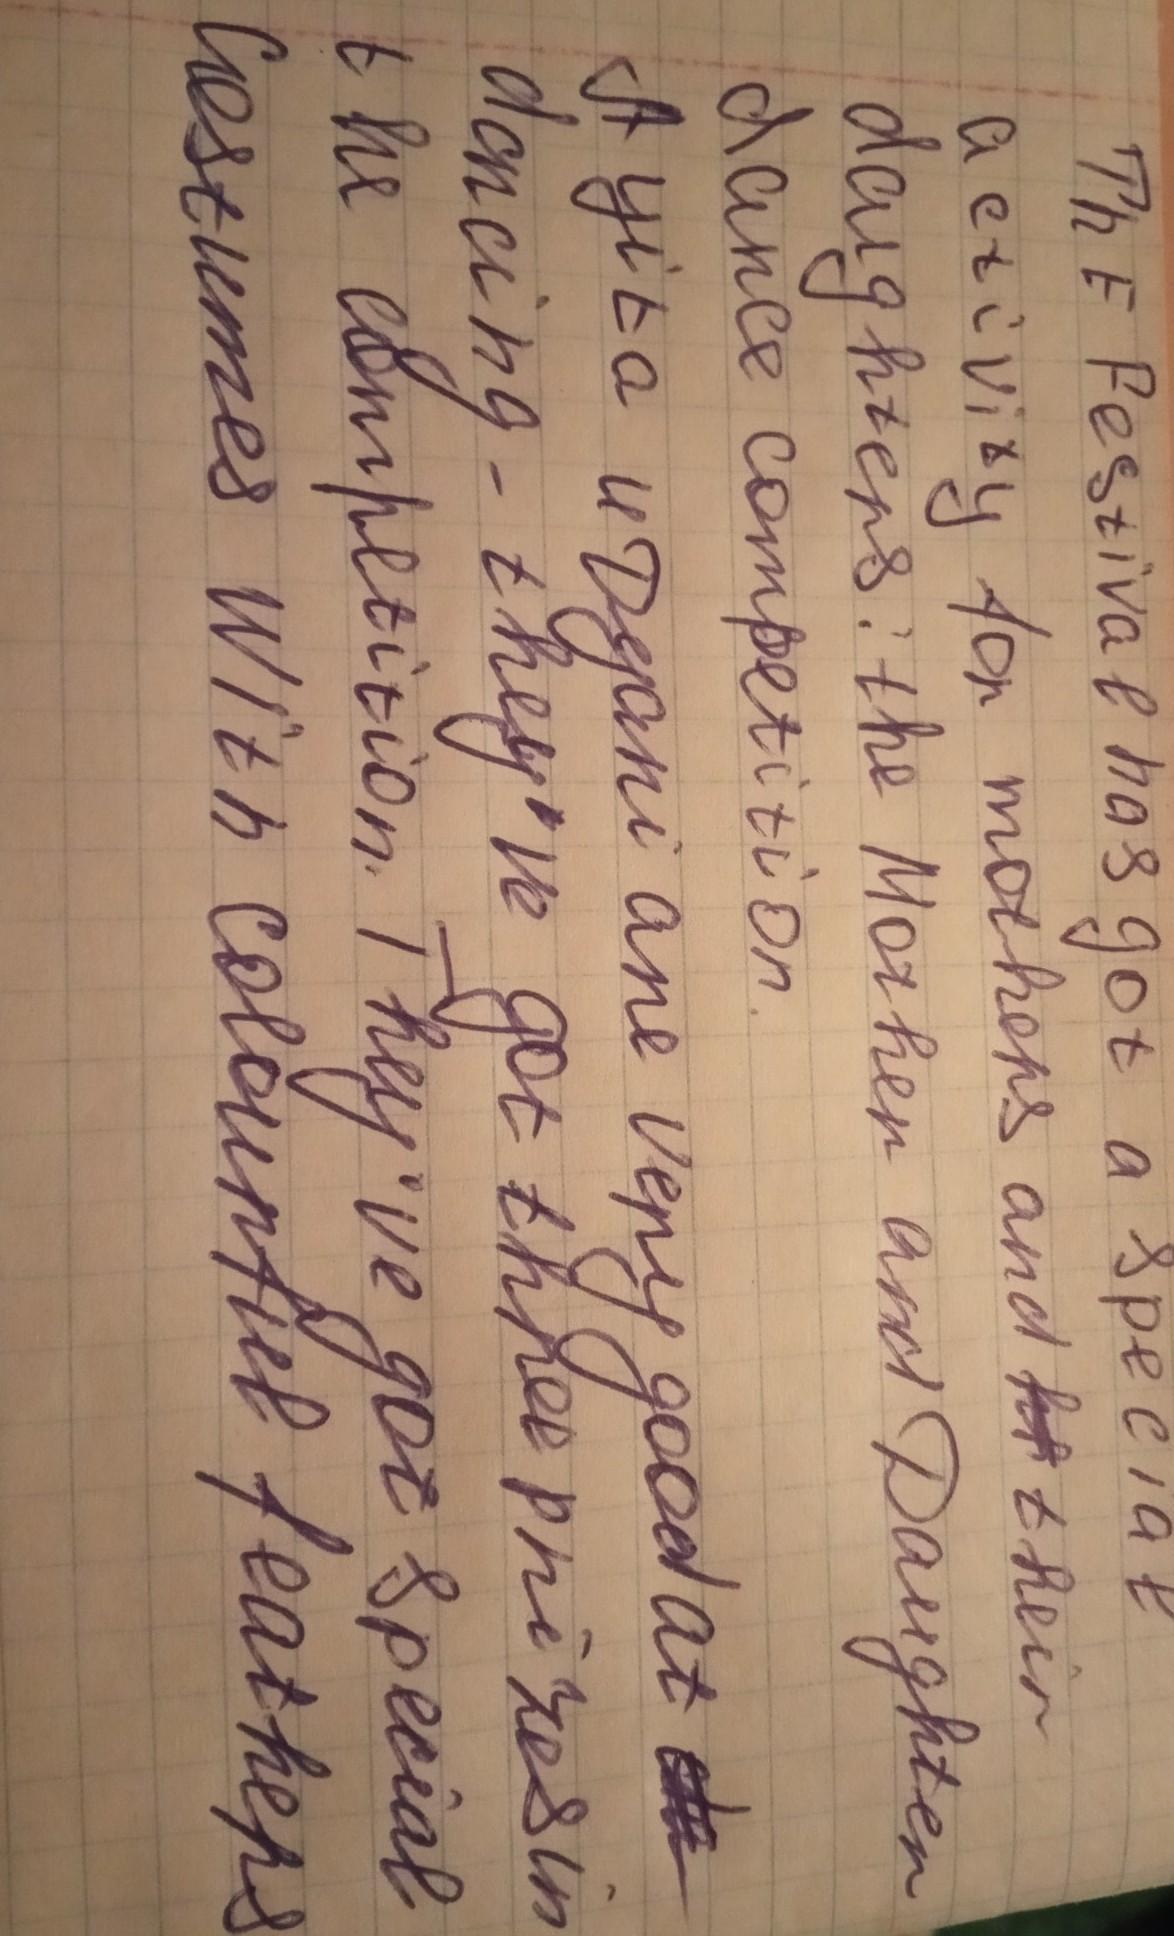 ThE Festival has got a special
activity for mothers and their
daughters: the Mother and Daughter
dance competition.
Ayita и Dyani are very good at
dancing - they've got three prizes in
the compltition. They've got special
Costumes With colourful feathers